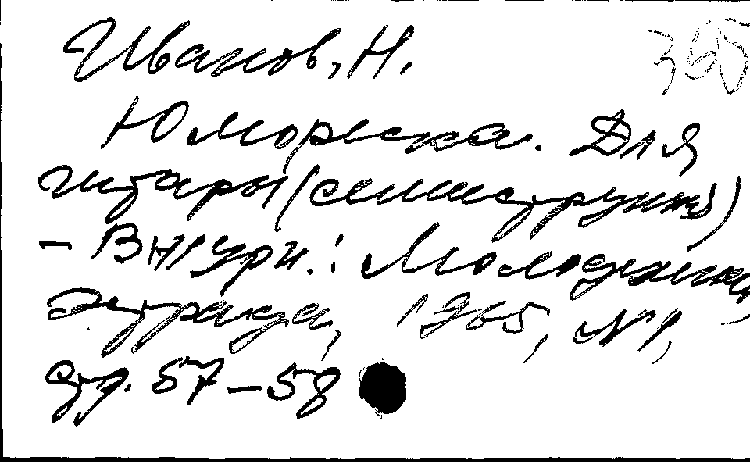 Иванов, Н. 355
Юмореска. Для
гитары (семиструнн)
– В журн.: Молодежная
эстрада, 1965, №1,
стр. 57–58